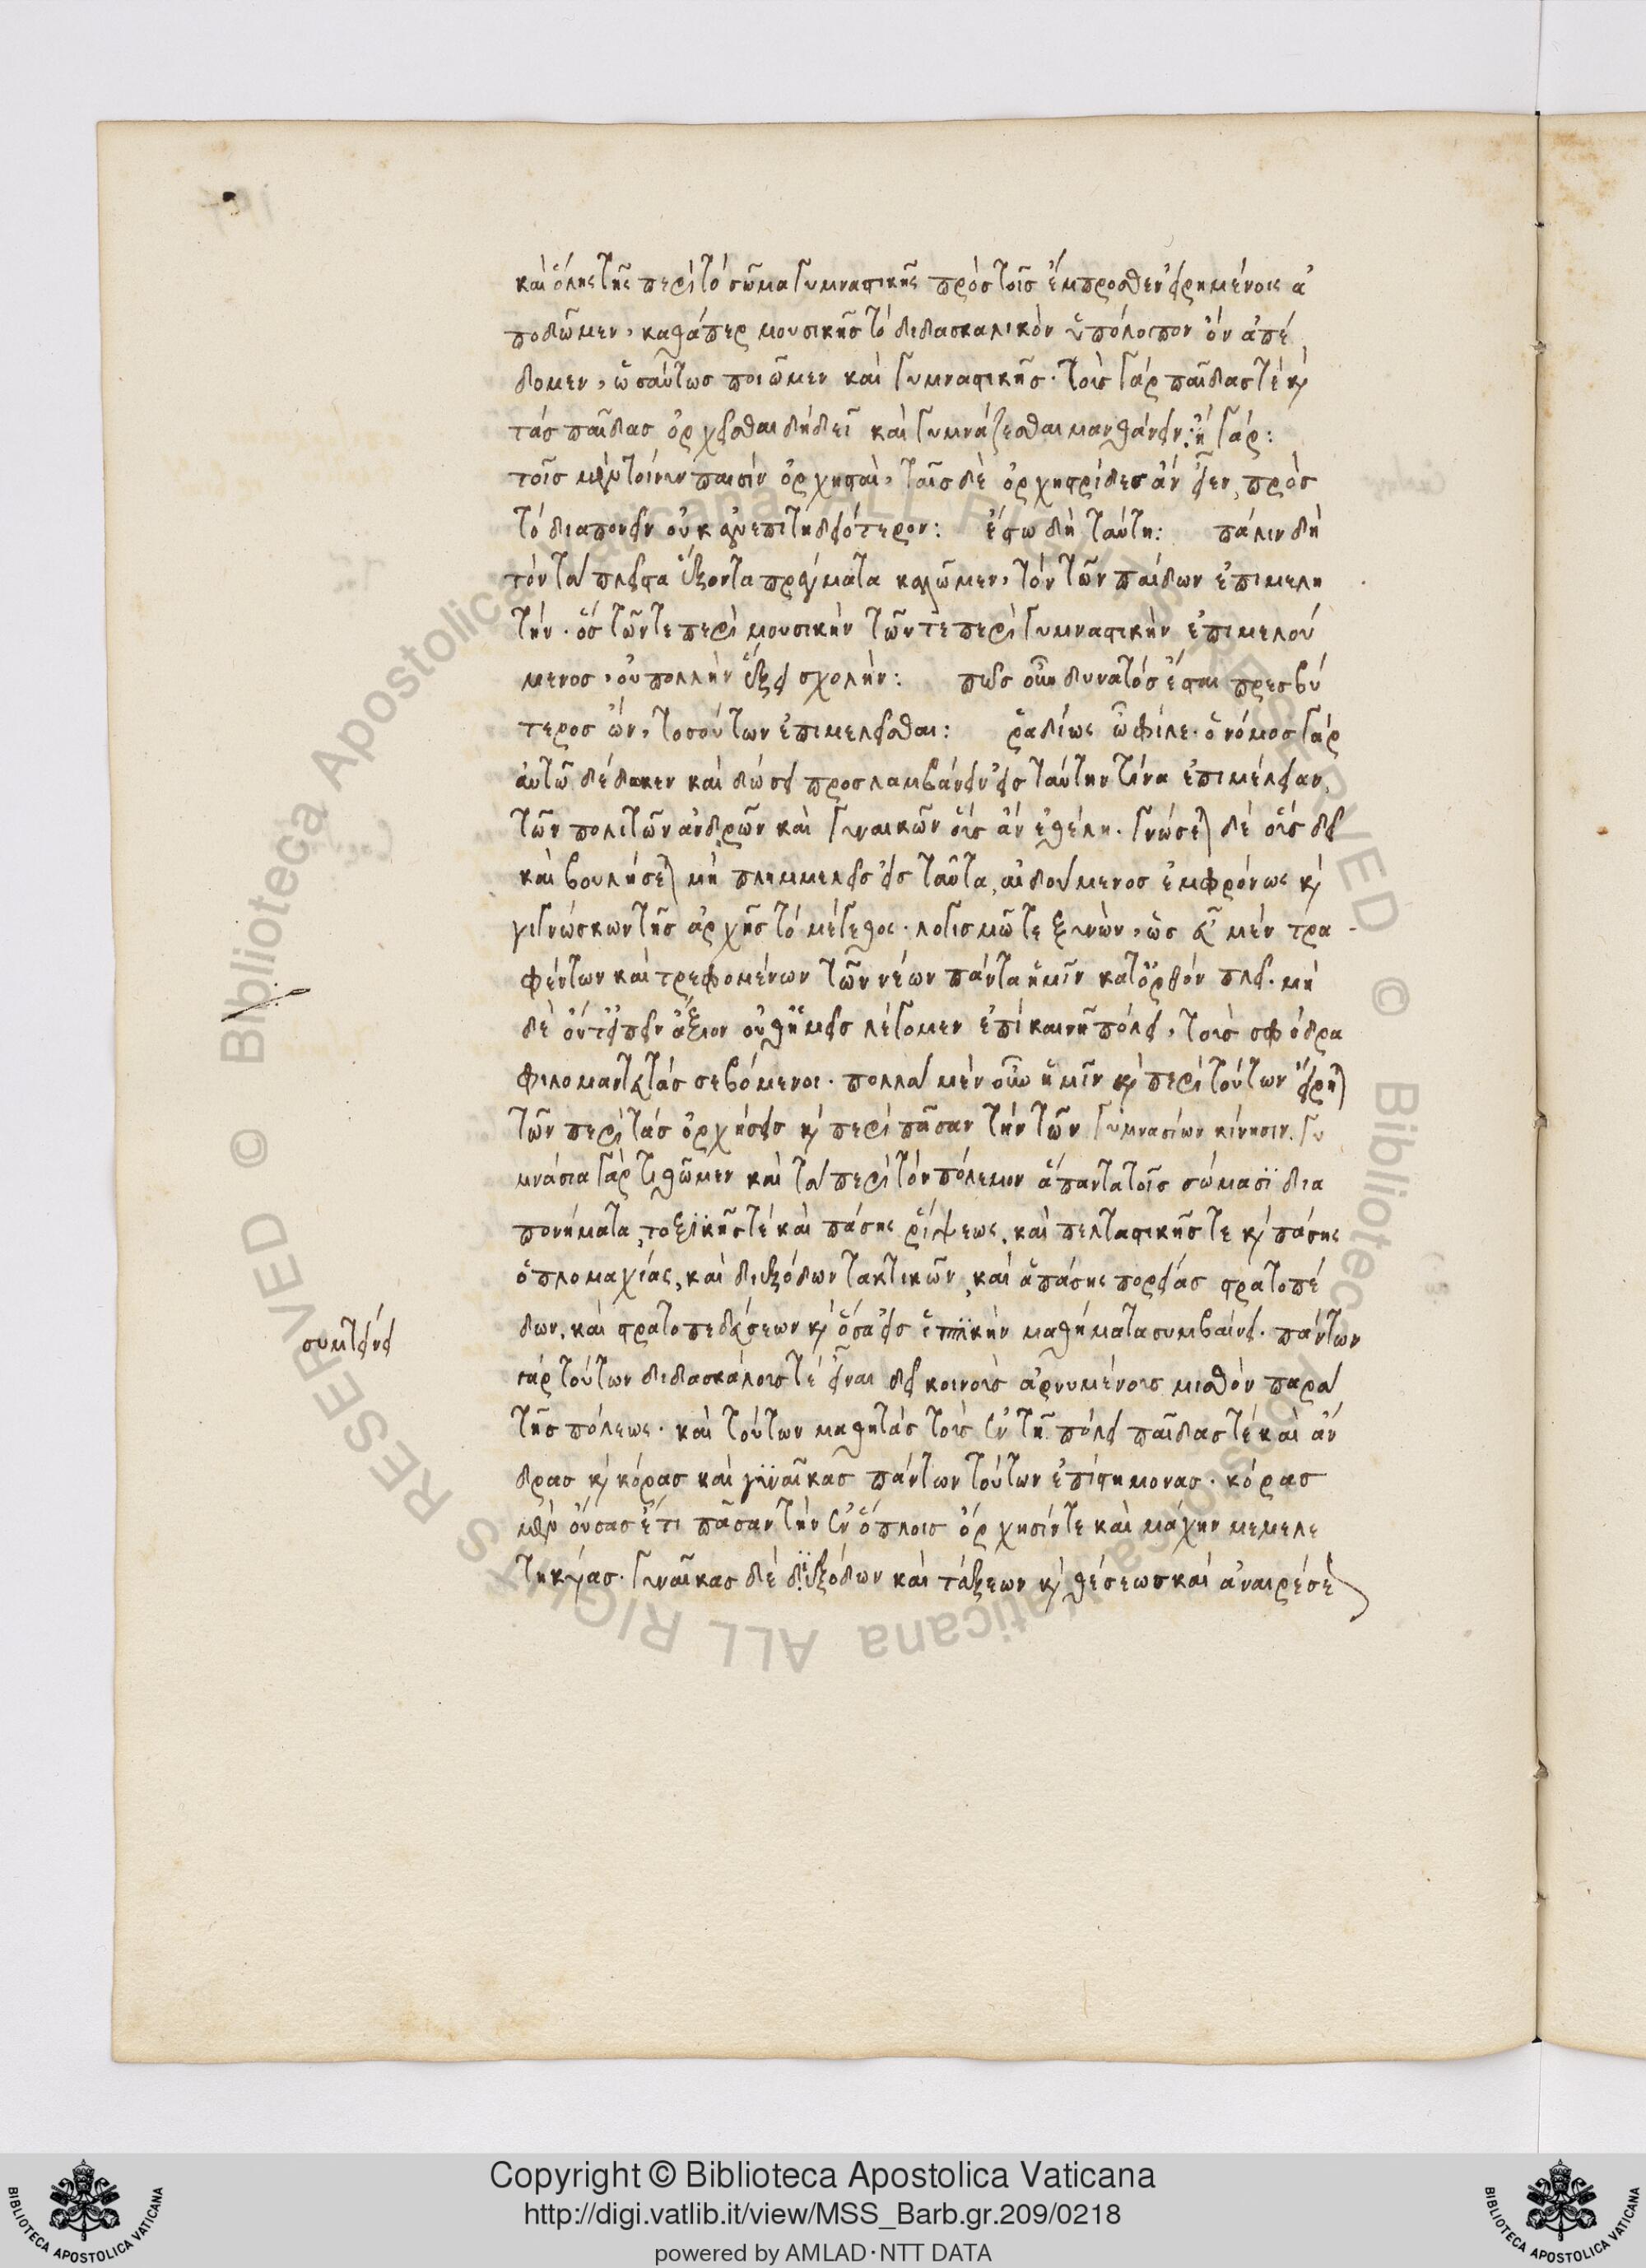 καὶ ὅλης τῆς περὶ τὸ σῶμα γυμναστικῆς πρὸς τοῖς ἔμπροσθεν εἰρημένοις ἀ
ποδῶμεν, καθάπερ μουσικῆς τὸ διδασκαλικὸν ὑπόλοιπον ὂν ἀπέ
δομεν, ὡσαύτως ποιῶμεν καὶ γυμναστικῆς. τοὺς γάρ παῖδας τέ κ
τάς παῖδας ὀρχεῖσθαι δή δεῖ καὶ γυμνάζεσθαι μανθάνειν. ἢ γάρ:
τοῖς μὲν τοίνυν παισὶν ὀρχησταὶ, ταῖς δὲ ὀρχηστρίδες ἂν εἶεν, πρὸς
τὸ διαπονεῖν οὐκ ἀνεπιτηδειότερον: ἔστω δὴ ταύτη: πάλιν δὴ
τὸν τὰ πλεῖστα ἕξοντα πράγματα καλῶμεν, τὸν τῶν παίδων ἐπιμελη
τήν. ὃς τῶν τε περὶ μουσικὴν τῶν τε περὶ γυμναστικὴν ἐπιμελού
μενος, οὐ πολλὴν ἕξει σχολήν: πῶς οὖν δυνατὸς ἔσται πρεσβύ
τερος ὤν, τοσούτων ἐπιμελεῖσθαι: ῥαδίως ὦ φίλε. ὁ νόμος γάρ
αὐτῶ δέδωκεν καὶ δώσει προσλαμβάνειν εἰς ταύτην τίνα ἐπιμέλειαν,
τῶν πολιτῶν ἀνδρῶν καὶ γυναικῶν οὓς ἂν ἐθέλη. γνώσεται δὲ οὓς δεῖ
καὶ βουλήσεται μὴ πλημμελεῖς εἰς ταῦτα, αἰδούμενος ἐμφρόνως κ
γιγνώσκων τῆς ἀρχῆς τὸ μέγεθος. λογισμῶ τε ξυνὼν, ὡς εὖ μὲν τρα
φέντων καὶ τρεφομένων τῶν νέων πάντα ἡμῖν κατ ὀρθόν πλεῖ. μὴ
δὲ οὔτ εἰπεῖν ἄξιον οὔθ ἡμεῖς λέγομεν ἐπὶ καινῆ πόλει, τοὺς σφόδρα
φιλομαντευτὰς σεβόμενοι. πολλὰ μὲν οὖν ἡμῖν κ περὶ τούτων εἴρηται
τῶν περὶ τὰς ὀρχήσεις κ περὶ πᾶσαν τὴν τῶν γυμνασίων κίνησιν. γυ
μνάσια γὰρ τιθῶμεν καὶ τὰ περὶ τὸν πόλεμον ἅπαντα τοῖς σώμασϊ δια
πονήματα, τοξικῆς τέ καὶ πάσης ῥίψεως, καὶ πελταστικῆς τε κ πάσης
ὁπλομαχίας, καὶ διεξόδων τακτικῶν, καὶ ἁπάσης πορείας στρατοπέ
δων, καὶ στρατοπεδεύσεων κ ὅσα εἰς ἱππϊκὴν μαθήματα συμβαίνει. πάντων
συντείνει
γὰρ τούτων διδασκάλους τέ εἶναι δεῖ κοινοὺς ἀρνυμένους μισθὸν παρὰ
τῆς πόλεως. καὶ τούτων μαθητὰς τοὺς ἐν τῆ πόλει παῖδας τέ καὶ ἄν
δρας κ κόρας καὶ γυναῖκας πάντων τούτων ἐπιστήμονας. κόρας
μὲν οὔσας ἔτι πᾶσαν τὴν ἐν ὅπλοις ὄρχησίν τε καὶ μάχην μεμελε
τηκυίας. γυναῖκας δὲ διεξόδων καὶ τάξεων κ θέσεως καὶ ἀναιρέσε